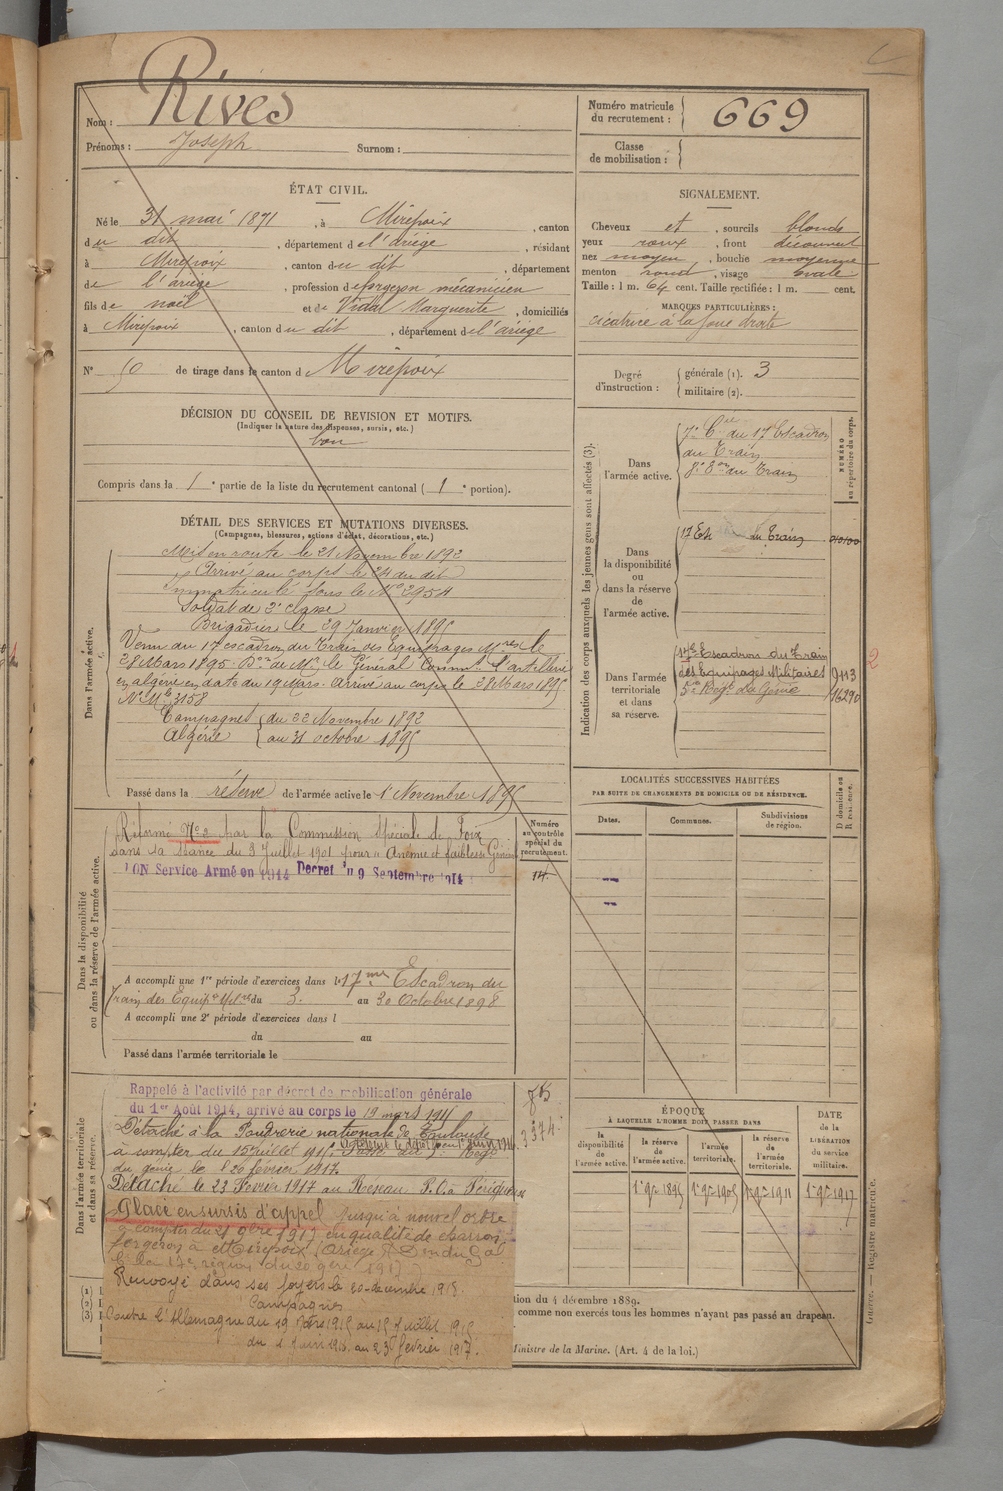 Nom : Rives
Prénoms : Joseph Surnom :
Numéro matricule du recrutement : 669
Classe de mobilisation :
ÉTAT CIVIL.
Né le 31 mai 1871, à Mirepoix, canton
du dit, département de l'ariège, résidant
à Mirepoix, canton du dit, département
de l'ariège, profession de forgeron mécanicien
fils de noël et de Vidal Marguerite, domiciliés
à Mirepoix, canton du dit, département de l'ariège
N° 50 de tirage dans le canton de Mirepoix
DÉCISION DU CONSEIL DE REVISION ET MOTIFS.
(Indiquer la nature des dispenses, sursis, etc.)
bon
Compris dans la 1e partie de la liste du recrutement cantonal (1e portion).
SIGNALEMENT.
Cheveux et, sourcils blonds
yeux roux, front découvert
nez moyen, bouche moyenne
menton rond, visage ovale
Taille : 1 m. 64 cent. Taille rectifiée : 1 m. cent.
MARQUES PARTICULIÈRES :
cicatrice à la joue droite
Degré d'instruction : générale (1). 3
militaire (2).
DÉTAIL DES SERVICES ET MUTATIONS DIVERSES.
(Campagnes, blessures, actions d'éclat, décorations, etc.)
Dans l'armée active.
Mis en route le 21 Novembre 1892
Arrivé au corps le 24 du dit
immatriculé sous le N° 2954
Soldat de 2e classe
Brigadier le 29 Janvier 1895
Venu du 17 escadron du Train des Equipages Mres le
28 Mars 1895. Don de Mr le Général Commt l'artillerie
en algérie en date du 19 Mars. Arrivé au corps le 28 Mars 1895
N° Mle 3158
Campagnes du 22 Novembre 1892
Algérie au 31 octobre 1895
Passé dans la réserve de l'armée active le 1 Novembre 1895
Indication des corps auxquels les jeunes gens sont affectés (3).
NUMÉRO au répertoire du corps.
Dans l'armée active.
7e Cie du 17 Escadron
du Train
8e Eon du Train
Dans la disponibilité ou dans la réserve de l'armée active.
17 du Train
Dans l'armée territoriale et dans sa réserve.
17e Escadron du Train
des Equipages Militaires 9113
5e Régt du Génie 16290
2
Dans la disponibilité ou dans la réserve de l'armée active.
Réformé N° 2 par la Commission Spéciale de Foix
dans sa séance du 3 Juillet 1901 pour "Anémie et faiblesse Générale
BON Service Armé en 1914 Decret du 9 Septembre 1914
Numéro au contrôle spécial du recrutement.
14.
A accompli une 1re période d'exercices dans le 17me Escadron du
Train des Equipes Mlres du 3. au 30 Octobre 1898
A accompli une 2e période d'exercices dans l
du au
Passé dans l'armée territoriale le
LOCALITÉS SUCCESSIVES HABITÉES
PAR SUITE DE CHANGEMENTS DE DOMICILE OU DE RÉSIDENCE.
Dates. Communes. Subdivisions de région. D domicile ou R résidence.
Dans l'armée territoriale et dans sa réserve.
Rappelé à l'activité par décret de mobilisation générale
du 1er Août 1914, arrivé au corps le 19 mars 1915
Détaché à la Poudrerie nationale de Toulouse
à compter du 15 juillet 1915. Passé au 5e Régt
du génie le 20 février 1917.
Détaché le 23 Février 1917 au Réseau P.O. à Périgueux
Placé en sursis d'appel jusqu'à nouvel ordre
à compter du 21 9bre 1917 en qualité de charron
forgeron à Mirepoix (Ariège)
Renvoyé dans ses foyers le 30 decembre 1918.
Campagnes
Contre l'Allemagne du 19 Mars 1915 au 15 Juillet 1915
du 1 Juin 1916 au 23 février 1917.
3374.
ÉPOQUE
À LAQUELLE L'HOMME DOIT PASSER DANS
la disponibilité de l'armée active. la réserve de l'armée active. l'armée territoriale. la réserve de l'armée territoriale.
DATE de la LIBÉRATION du service militaire.
1er 9bre 1895 1er 9bre 1905 1er 9bre 1911 1er 9bre 1917
(1)
(2)
(3)
tion du 4 décembre 1889.
comme non exercés tous les hommes n'ayant pas passé au drapeau.
Ministre de la Marine. (Art. 4 de la loi.)
Guerre. — Registre matricule.